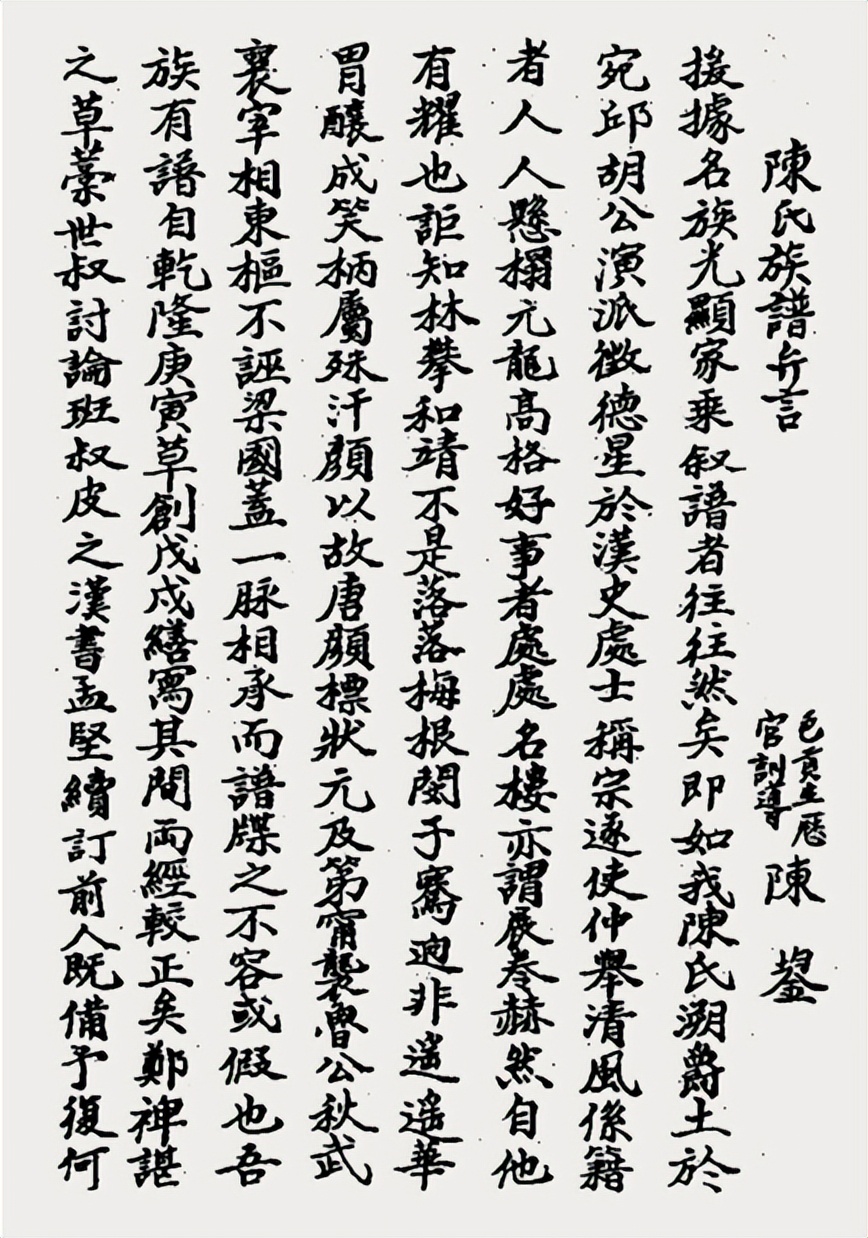 陳氏族譜弁言
邑貢生歷
官訓導
陳鋆
援據名族光顯家乘叙譜者往往然矣即如我陳氏溯爵土於
宛邱胡公演派徵德星於漢史處士稱宗遂使仲舉清風係籍
者人人懸榻元龍高格好事者處處名樓亦謂展卷赫然自他
有耀也詎知林攀和靖不是落落梅根閔子騫迥非遥遥華
胄釀成笑柄屬殊汗顏以故唐顏標狀元及第甯襲魯公秋武
襄宰相東樞不誣梁國蓋一脉相承而譜牒之不容或假也吾
族有譜自乾隆庚寅草創戊戌繕寫其間兩經較正矣鄭裨諶
之草藁世叔討論班叔皮之漢書孟堅續訂前人既備予復何